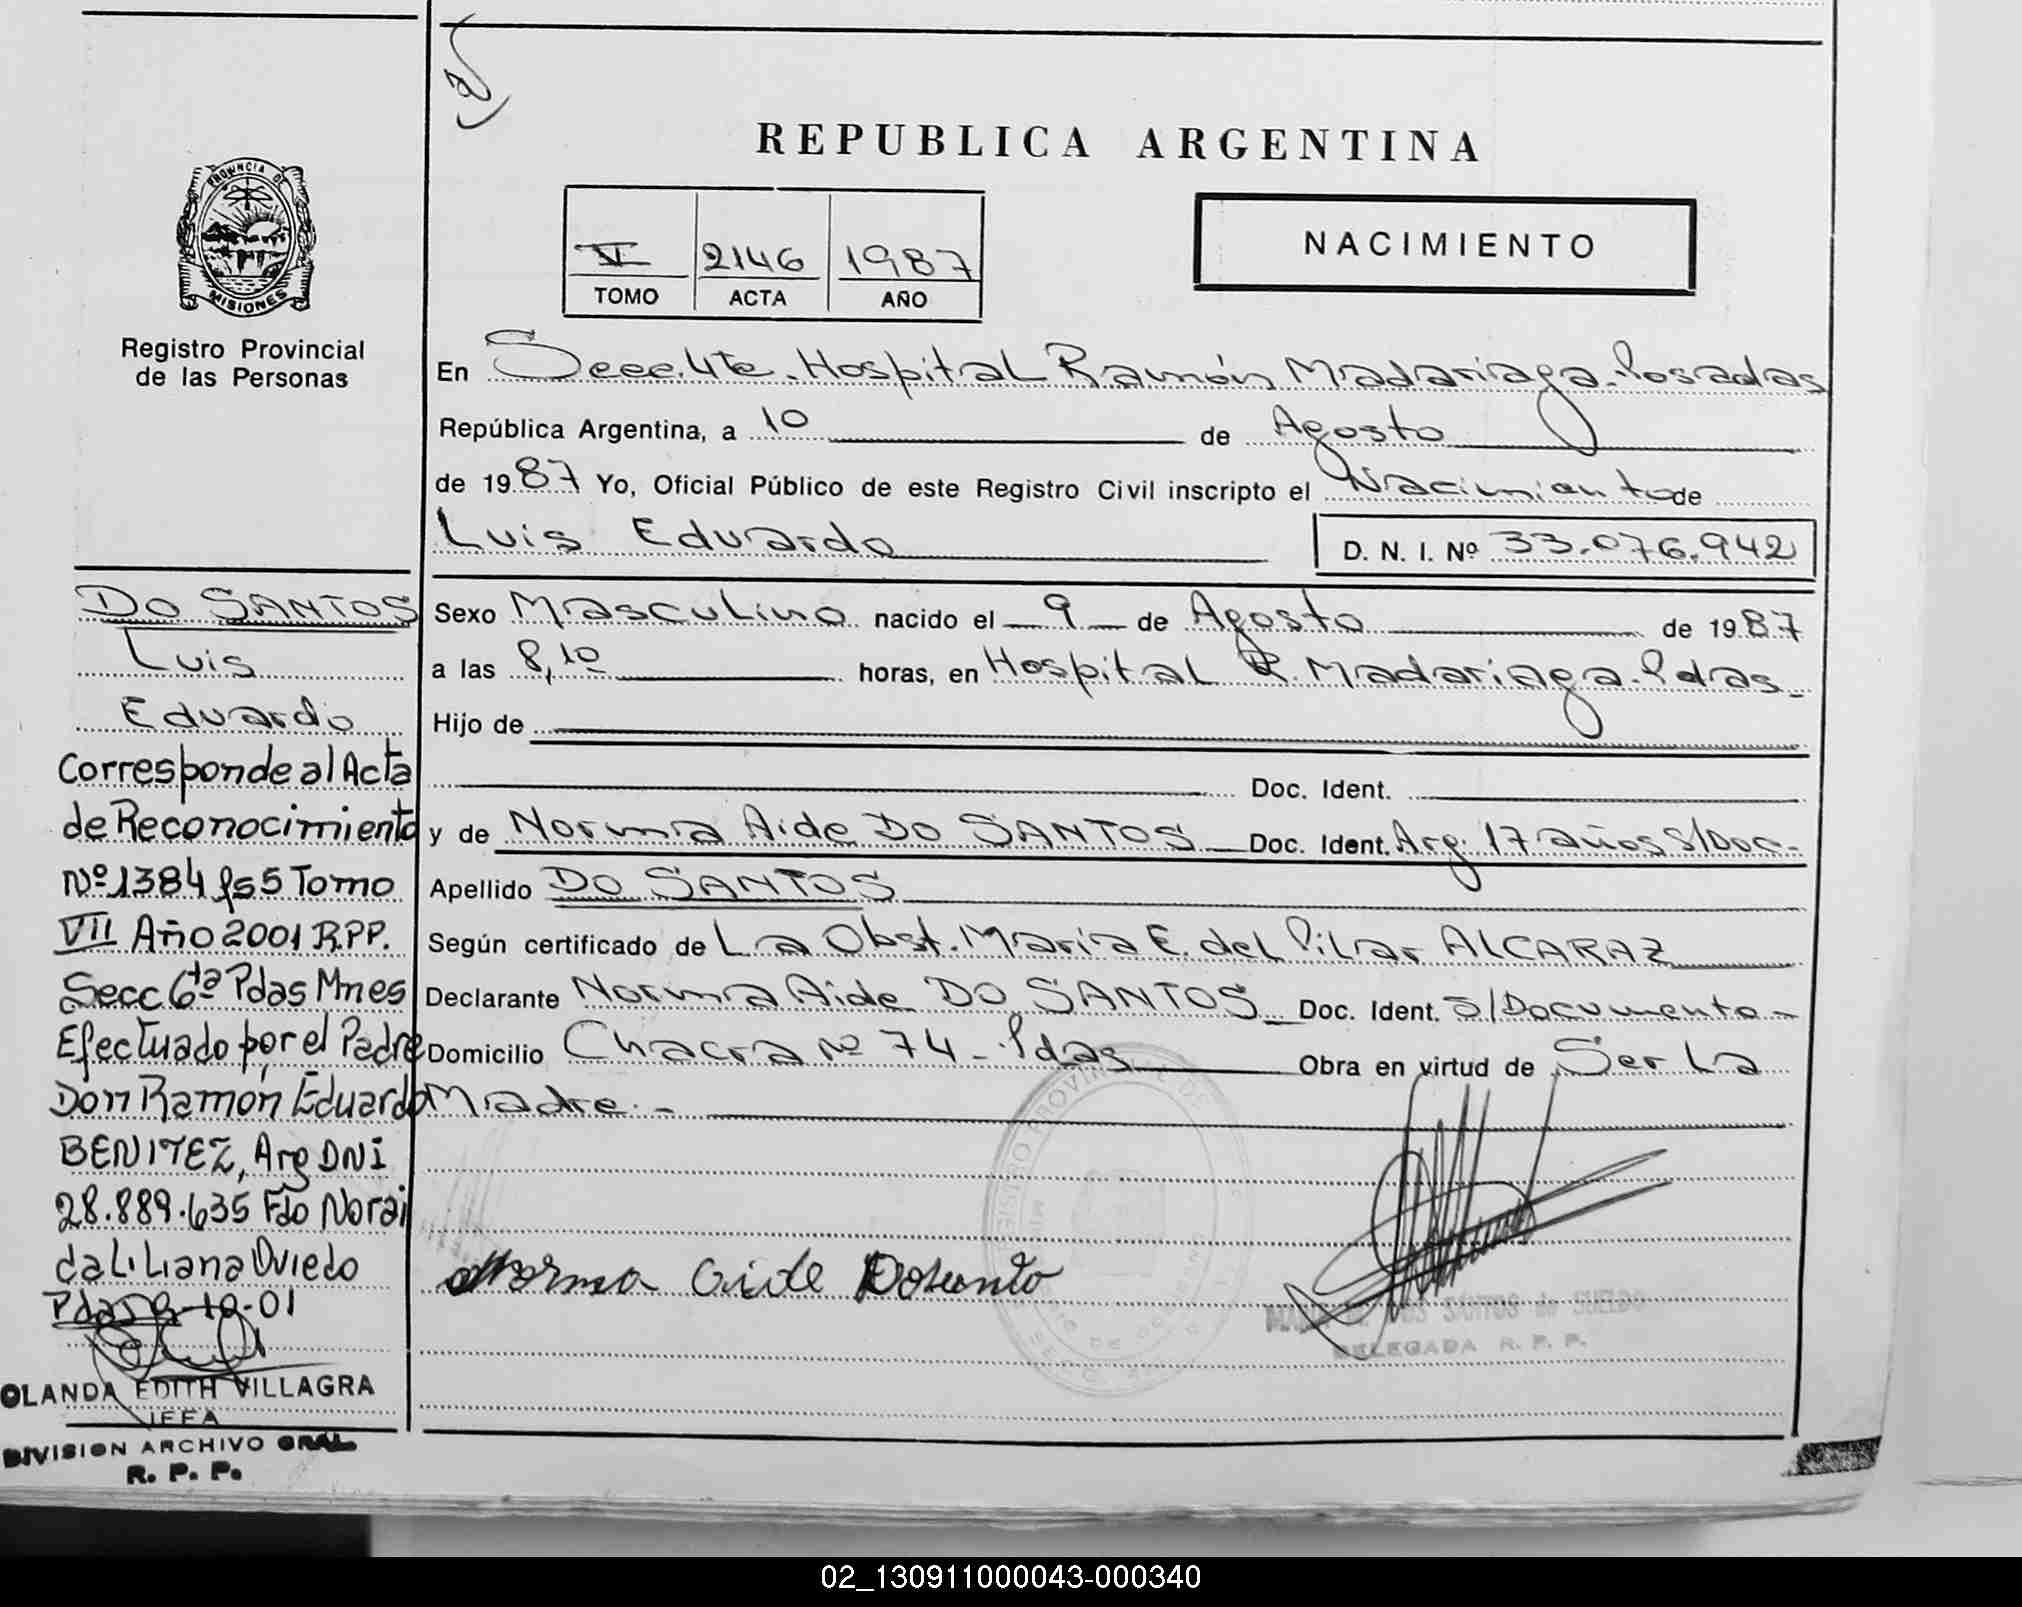 REPUBLICA ARGENTINA
PROVINCIA DE
MISIONES
Registro Provincial
de las Personas
VI 2146 1987
TOMO ACTA AÑO
NACIMIENTO
En Secc. 4ta. Hospital Ramón Madariaga. Posadas
República Argentina, a 10 de Agosto
de 1987 Yo, Oficial Público de este Registro Civil inscripto el Nacimiento de
Luis Eduardo D. N. I. Nº 33.076.942
Sexo Masculino nacido el 9 de Agosto de 1987
a las 8,10 horas, en Hospital R. Madariaga. Pdas
Hijo de
Doc. Ident.
y de Norma Aide DO SANTOS Doc. Ident. Arg. 17 años S/Doc.-
Apellido DO SANTOS
Según certificado de La Obst. María E. del Pilar ALCARAZ
Declarante Norma Aide DO SANTOS Doc. Ident. S/Documento-
Domicilio Chacra Nº 74 - Pdas Obra en virtud de Ser La
Madre.-
Norma Aide Dosanto
DOS SANTOS de SUELDO
DELEGADA R. P. P.
DO SANTOS
Luis
Eduardo
Corresponde al Acta
de Reconocimiento
Nº 1384 fs 5 Tomo
VII Año 2001 R.P.P.
Secc 6ta Pdas Mnes
Efectuado por el Padre
Don Ramón Eduardo
BENITEZ, Arg DNI
28.889.635 Fdo Norai
da Liliana Oviedo
Pdas -10-01
OLANDA EDITH VILLAGRA
JEFA
DIVISION ARCHIVO GRAL
R. P. P.
02_130911000043-000340